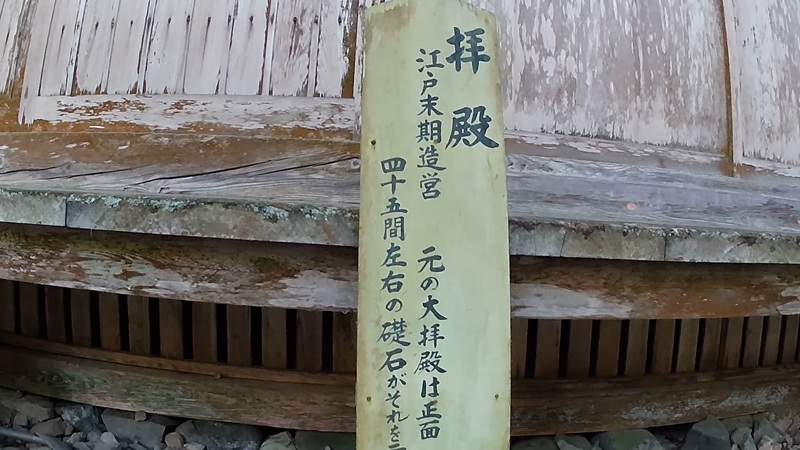 拝殿
江戸末期造営 元の大拝殿は正面
四十五間左右の礎石がそれを